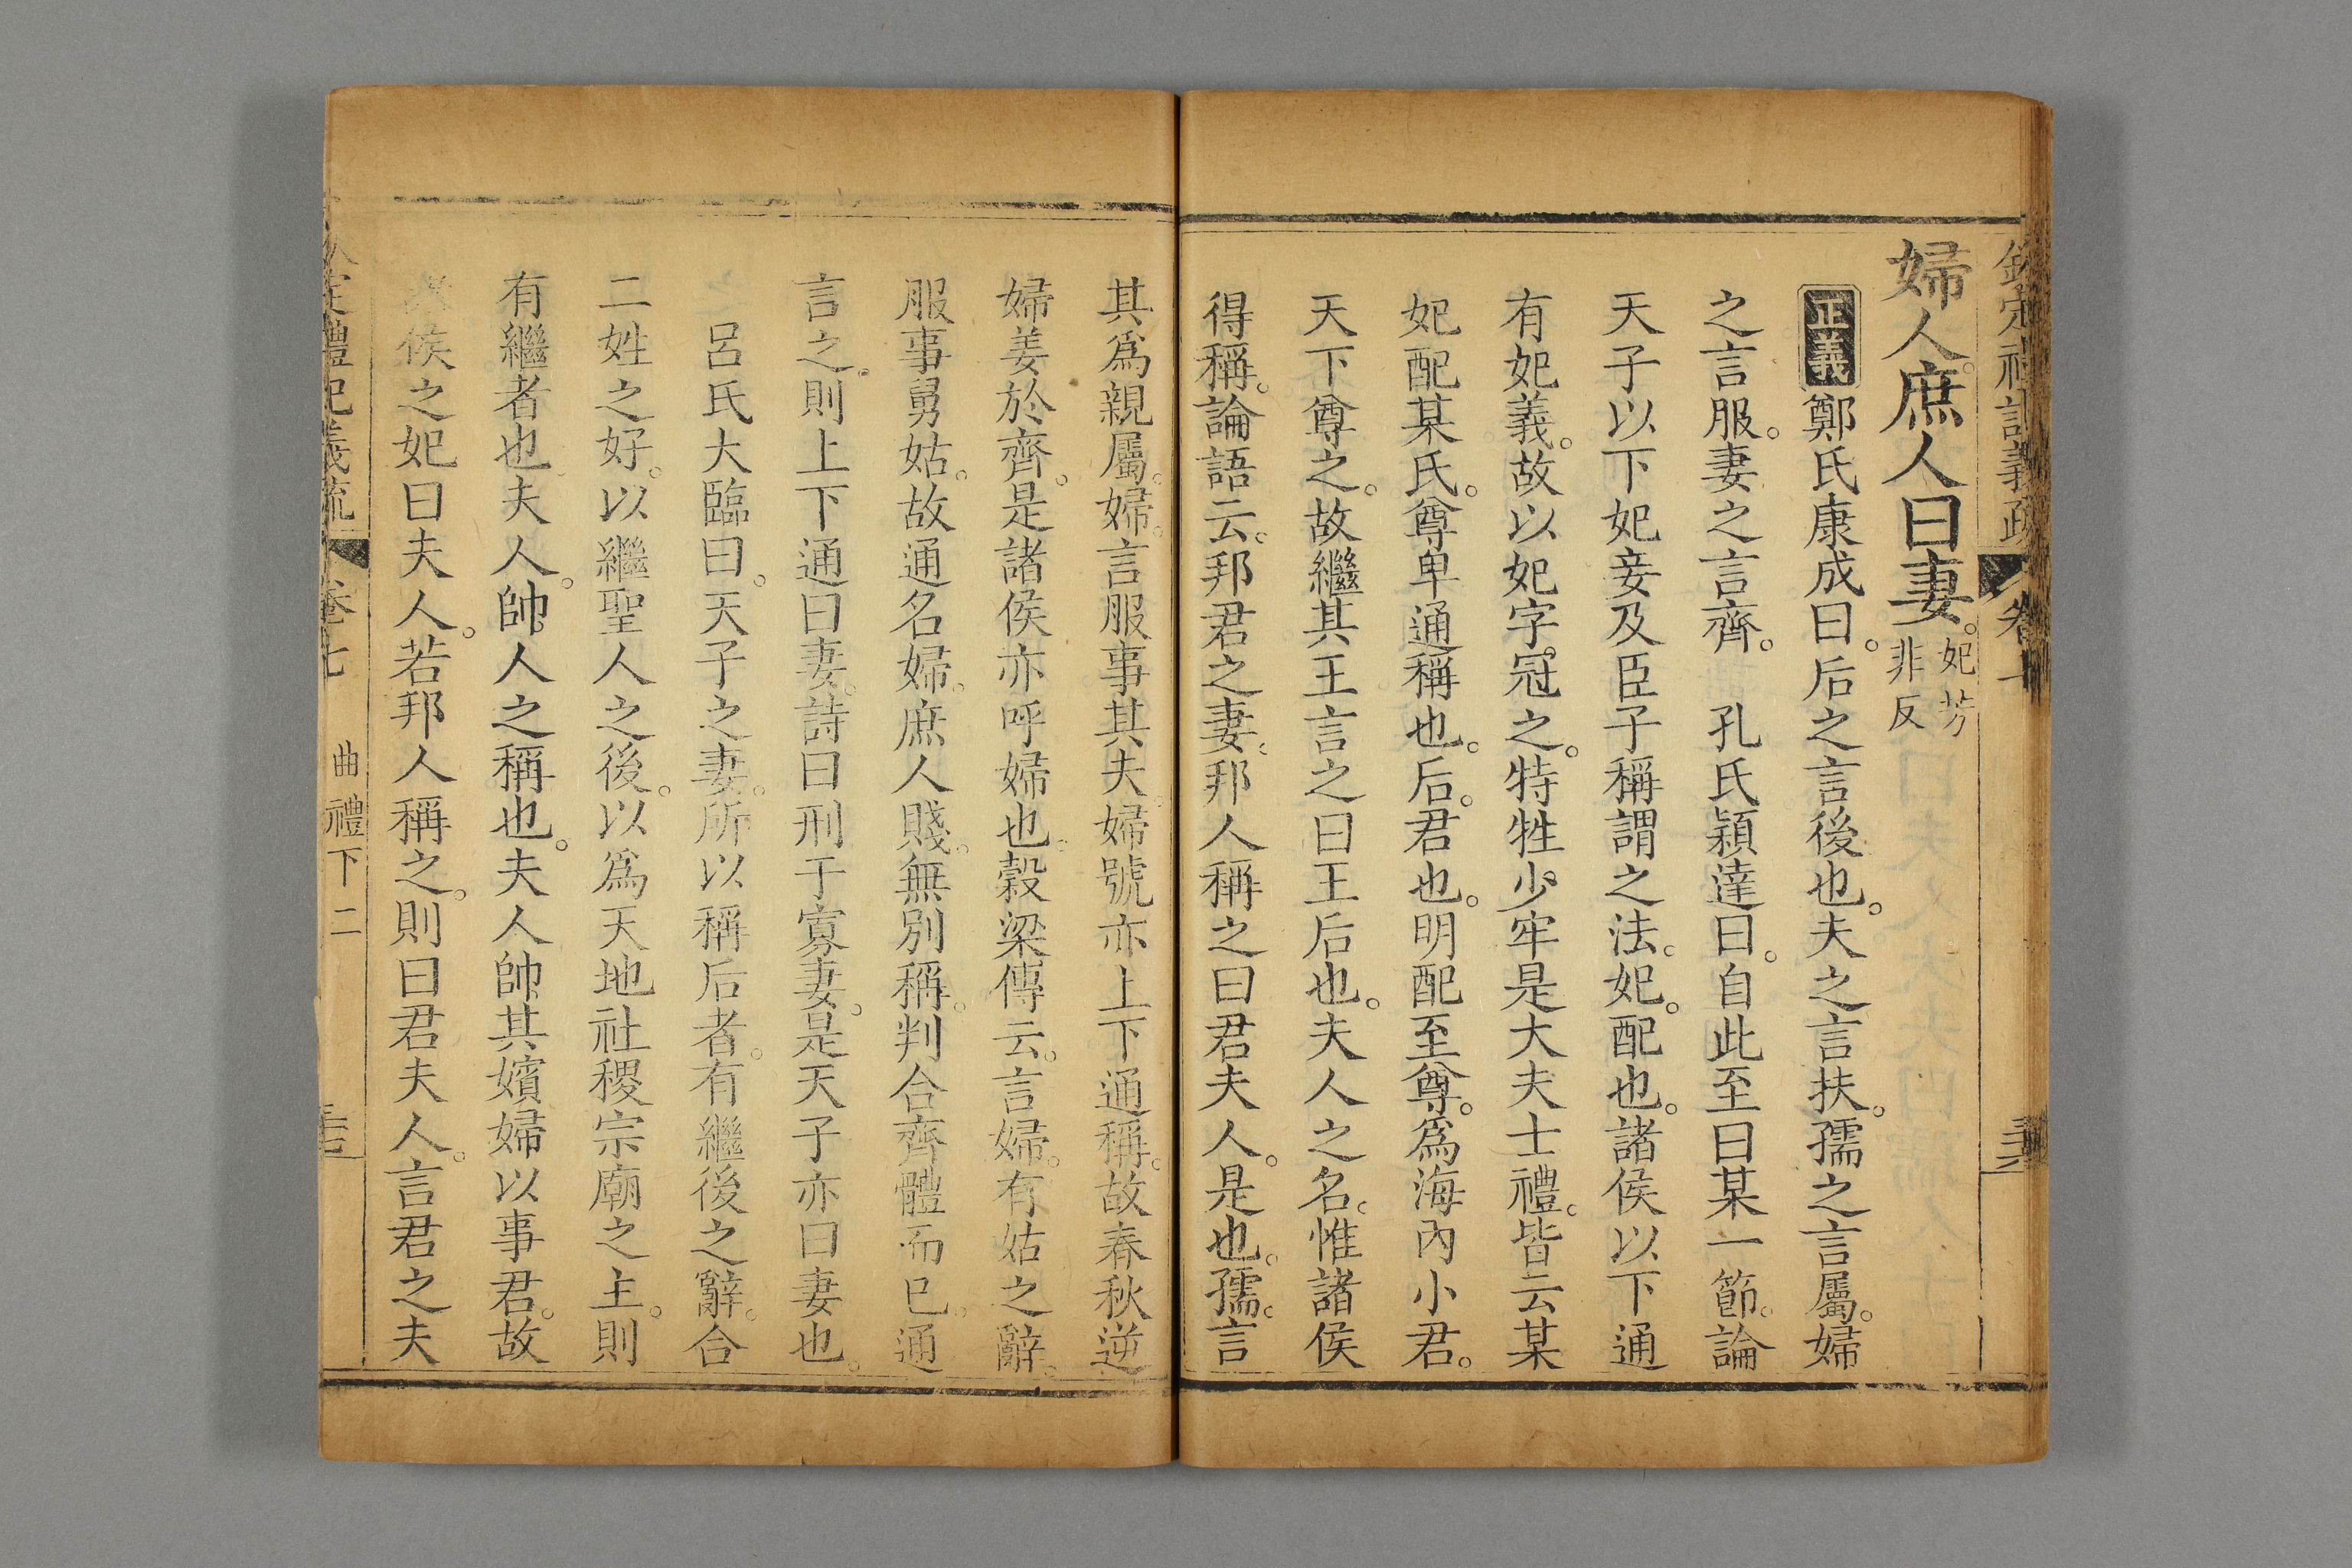 欽定禮記義疏 卷七
婦人庶人曰妻。妃芳非反
正義 鄭氏康成曰。后之言後也。夫之言扶。孺之言屬。婦
之言服。妻之言齊。 孔氏穎達曰。自此至曰某一節。論
天子以下妃妾及臣子稱謂之法。妃。配也。諸侯以下通
有妃義。故以妃字冠之。特牲少牢是大夫士禮。皆云某
妃配某氏。尊卑通稱也。后。君也。明配至尊。爲海內小君。
天下尊之。故繼其王言之曰王后也。夫人之名。惟諸侯
得稱。論語云。邦君之妻。邦人稱之曰君夫人。是也。孺。言
其爲親屬。婦。言服事其夫。婦號亦上下通稱。故春秋逆
婦姜於齊。是諸侯亦呼婦也。穀梁傳云。言婦。有姑之辭。
服事舅姑。故通名婦。庶人賤。無別稱。判合齊體而已。通
言之。則上下通曰妻。詩曰刑于寡妻。是天子亦曰妻也。
呂氏大臨曰。天子之妻。所以稱后者。有繼後之辭。合
二姓之好。以繼聖人之後。以爲天地社稷宗廟之主。則
有繼者也夫人。帥人之稱也。夫人帥其嬪婦以事君。故
侯之妃曰夫人。若邦人稱之。則曰君夫人。言君之夫
定禮記義疏 卷七 曲禮下二